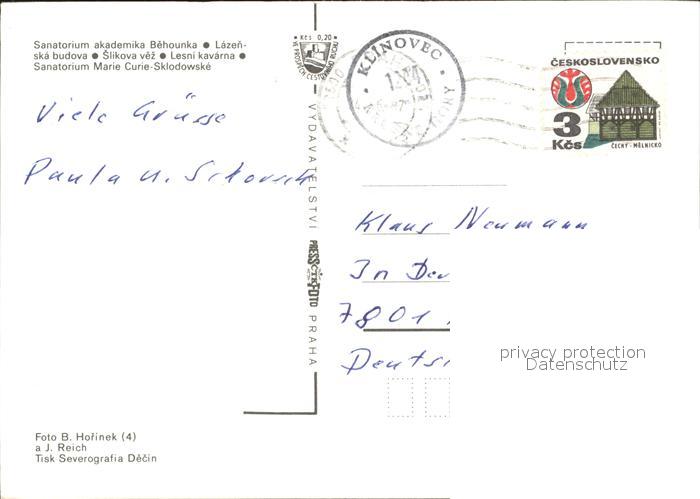 Sanatorium akademika Běhounka ● Lázeň-
ská budova ● Šlikova věž ● Lesní kavárna ●
Sanatorium Marie Curie-Sklodowské
Kčs 0,20
VE PROSPĚCH CESTOVNÍHO RUCHU
KLÍNOVEC
1244
ČESKOSLOVENSKO
3
Kčs
ČECHY - MĚLNICKO
Viele Grüsse
Paula u.
VYDAVATELSTVÍ PRESSFOTO PRAHA
Klaus Neumann
In
7801
privacy protection
Datenschutz
Foto B. Hořínek (4)
a J. Reich
Tisk Severografia Děčín